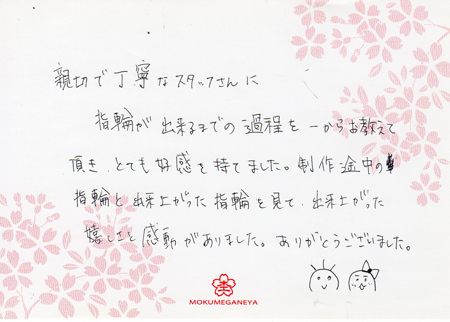 親切で丁寧なスタッフさんに
指輪が出来るまでの過程を一からお教えて
頂き、とても好感を持てました。制作途中の
指輪と出来上がった指輪を見て、出来上がった
嬉しさと感動がありました。ありがとうございました。
MOKUMEGANEYA